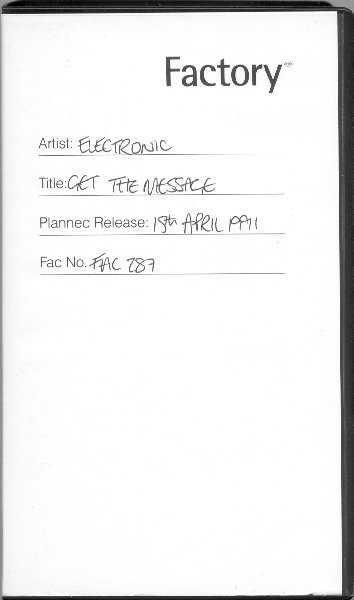 Factory™
Artist: ELECTRONIC
Title: GET THE MESSAGE
Planned Release: 15th APRIL 1991
Fac No. FAC 287